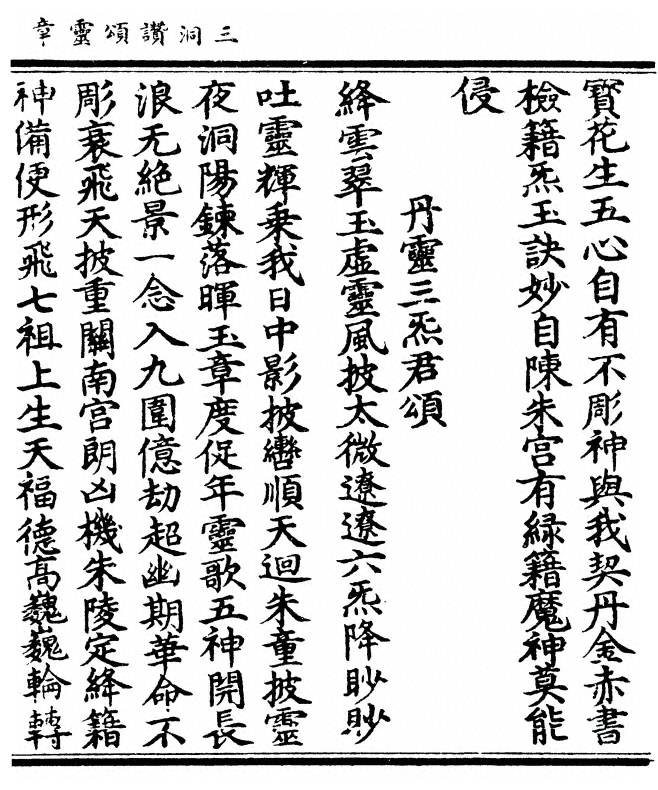 三洞讚頌靈章
寳花生五心自有不彫神與我契丹金赤書
檢籍炁玉訣妙自陳朱宮有緑籍魔神莫能
侵
丹靈三炁君頌
絳雲翠玉虛靈風披太微遼遼六炁降眇眇
吐靈輝乗我日中影披轡順天迴朱童披靈
夜洞陽鍊落暉玉章度促年靈歌五神開長
浪无絶景一念入九圍億劫超幽期華命不
彫衰飛天披重關南宫朗凶機朱陵定絳籍
神備便形飛七祖上生天福德高巍巍輪轉